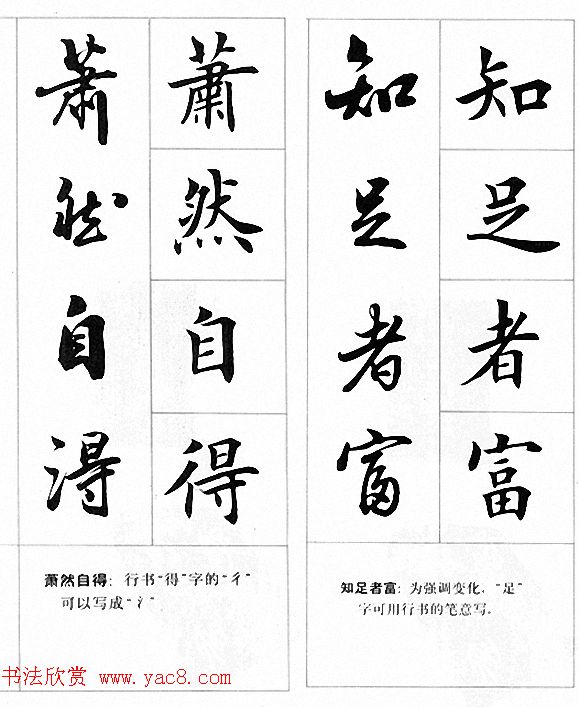 知足者富
知足者富
知足者富：为强调变化，“足”
字可用行书的笔意写。
蕭然自得
蕭然自得
萧然自得：行书“得”字的“彳”
可以写成“氵”
书法欣赏 www.yac8.com